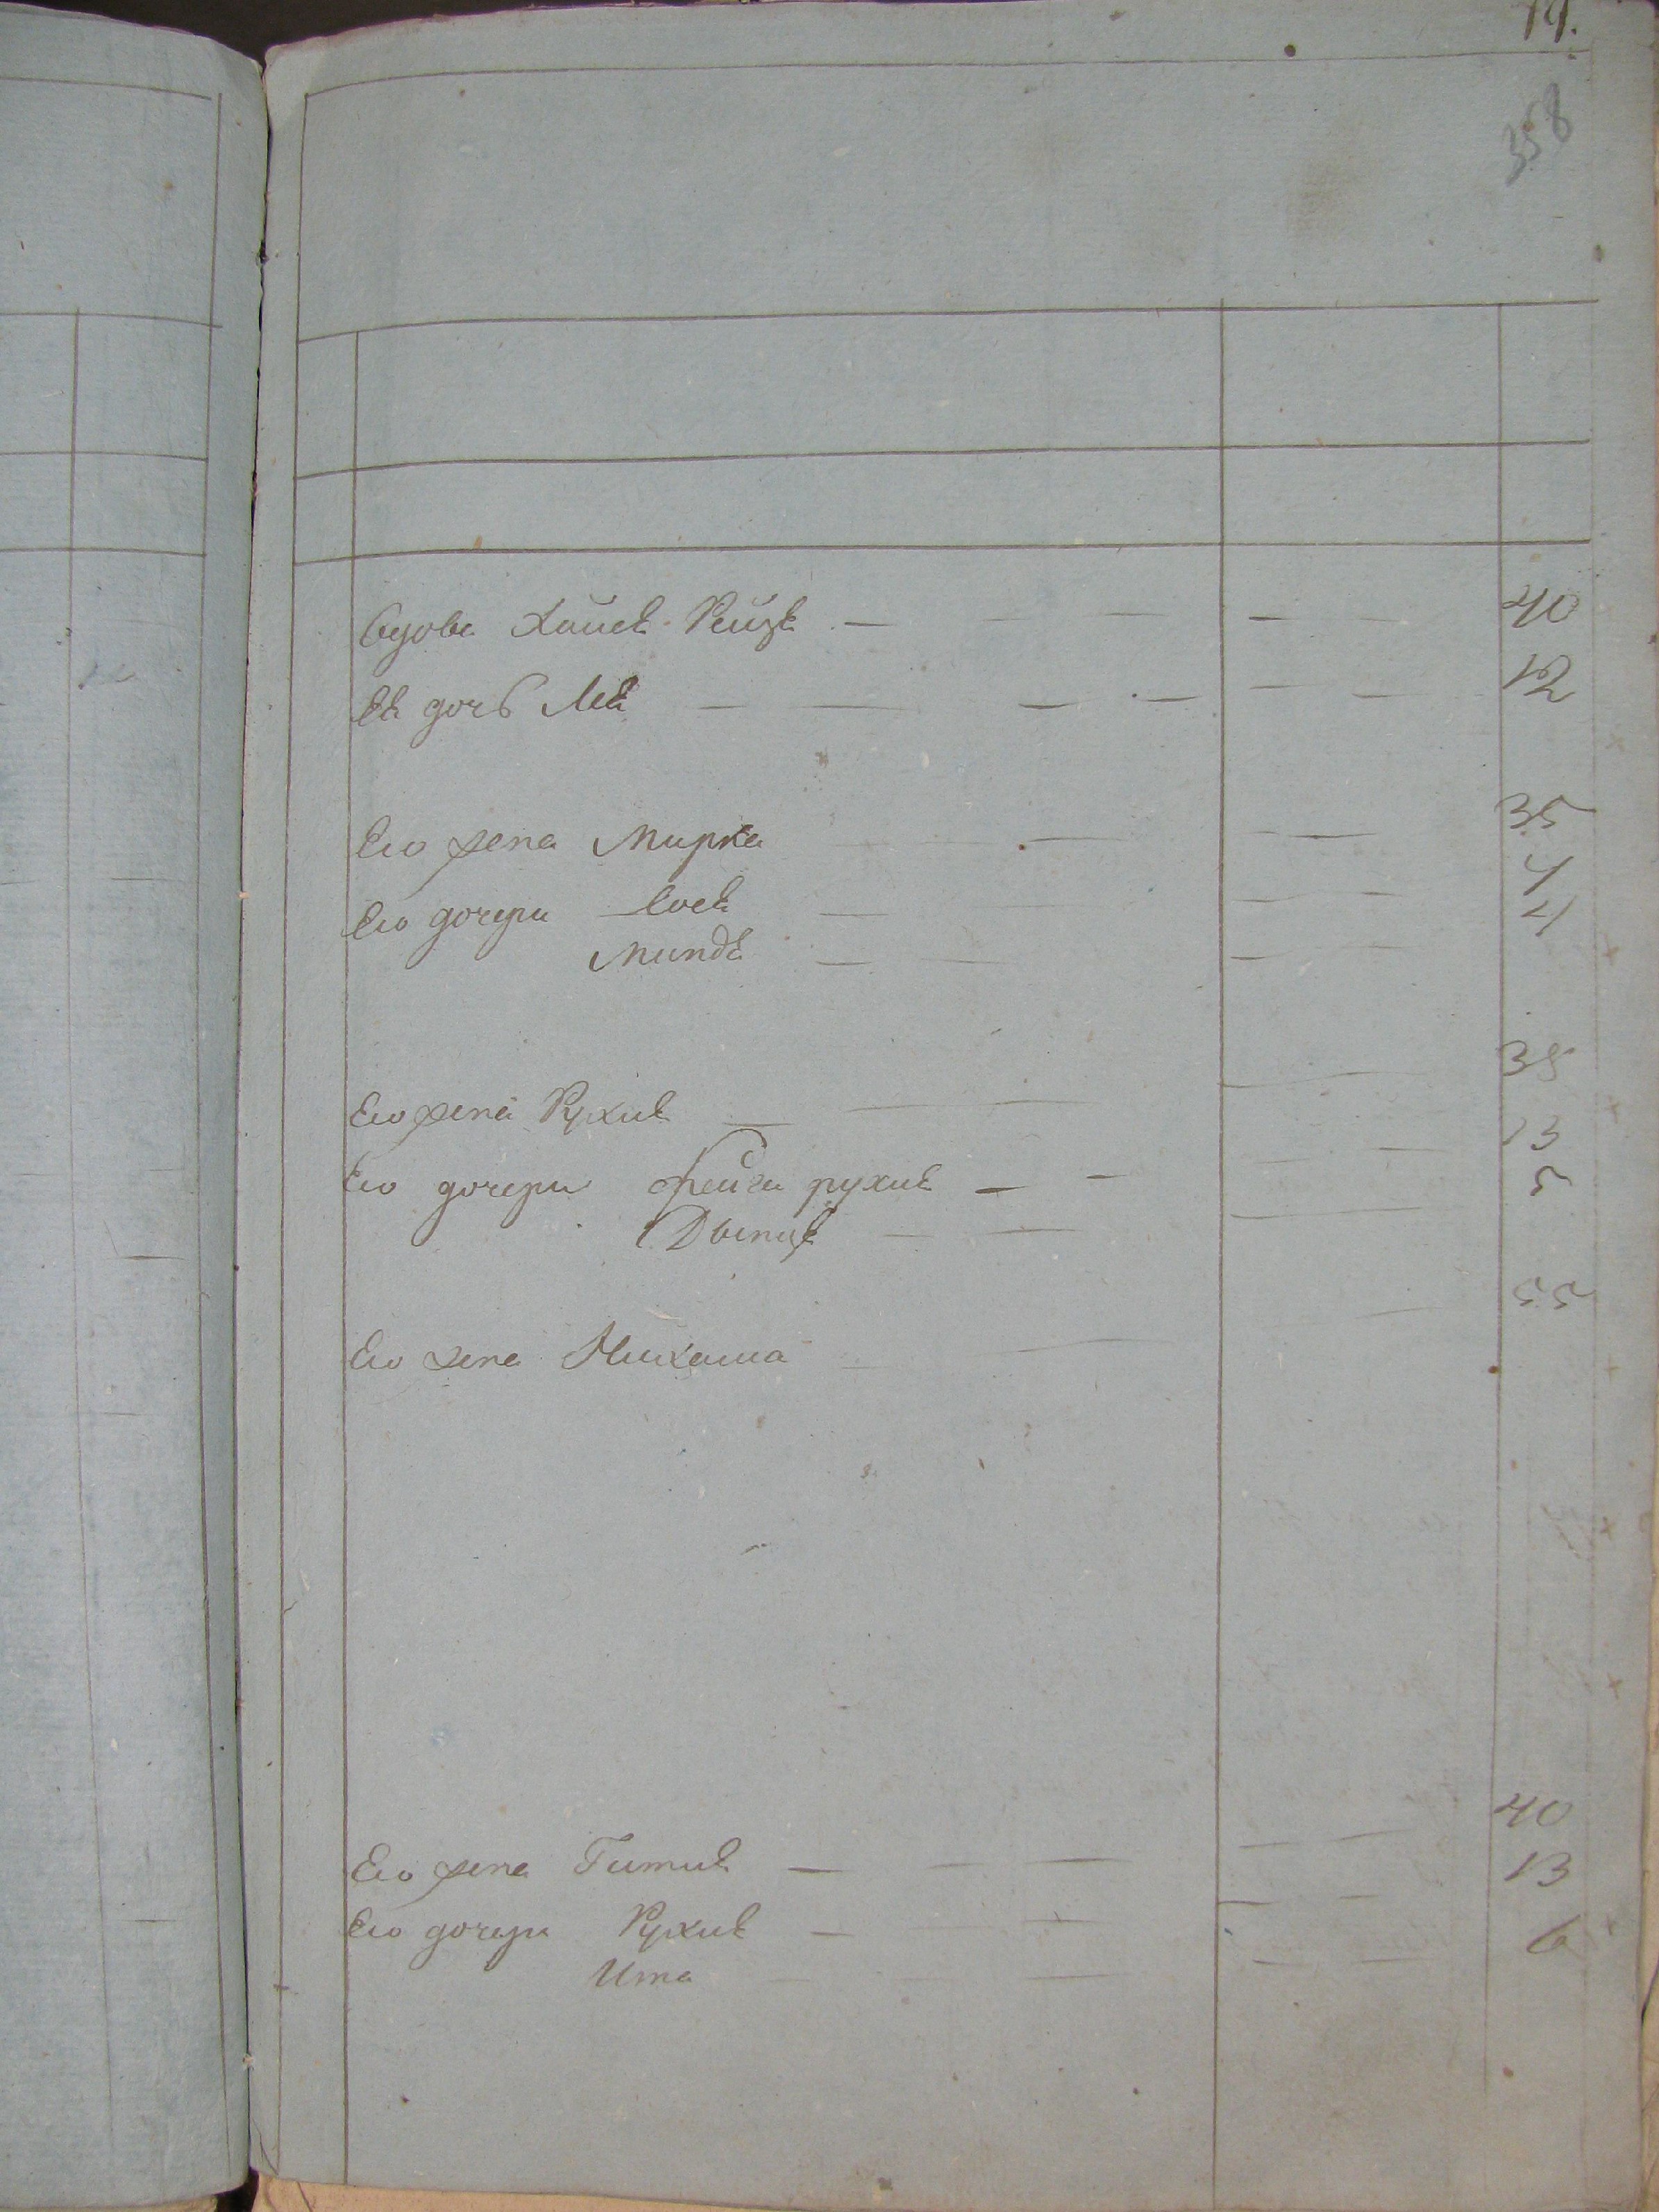 358
Вдова Хаиея Рейзя — — — — — 40
Ея дочь Лея — — — — — — 12
Его жена Мирка — — — 35
Его дочери — — — — 4
Миндя — — — — 4
Его жена Рухля — — — — 35
Его дочери Фейга рухля — — — — 13
Двеирля — — — 5
Его жена — — — 55
Его жена Гитля — — — — — 40
Его дочери Рухля — — — — 13
Ита — — — — 6